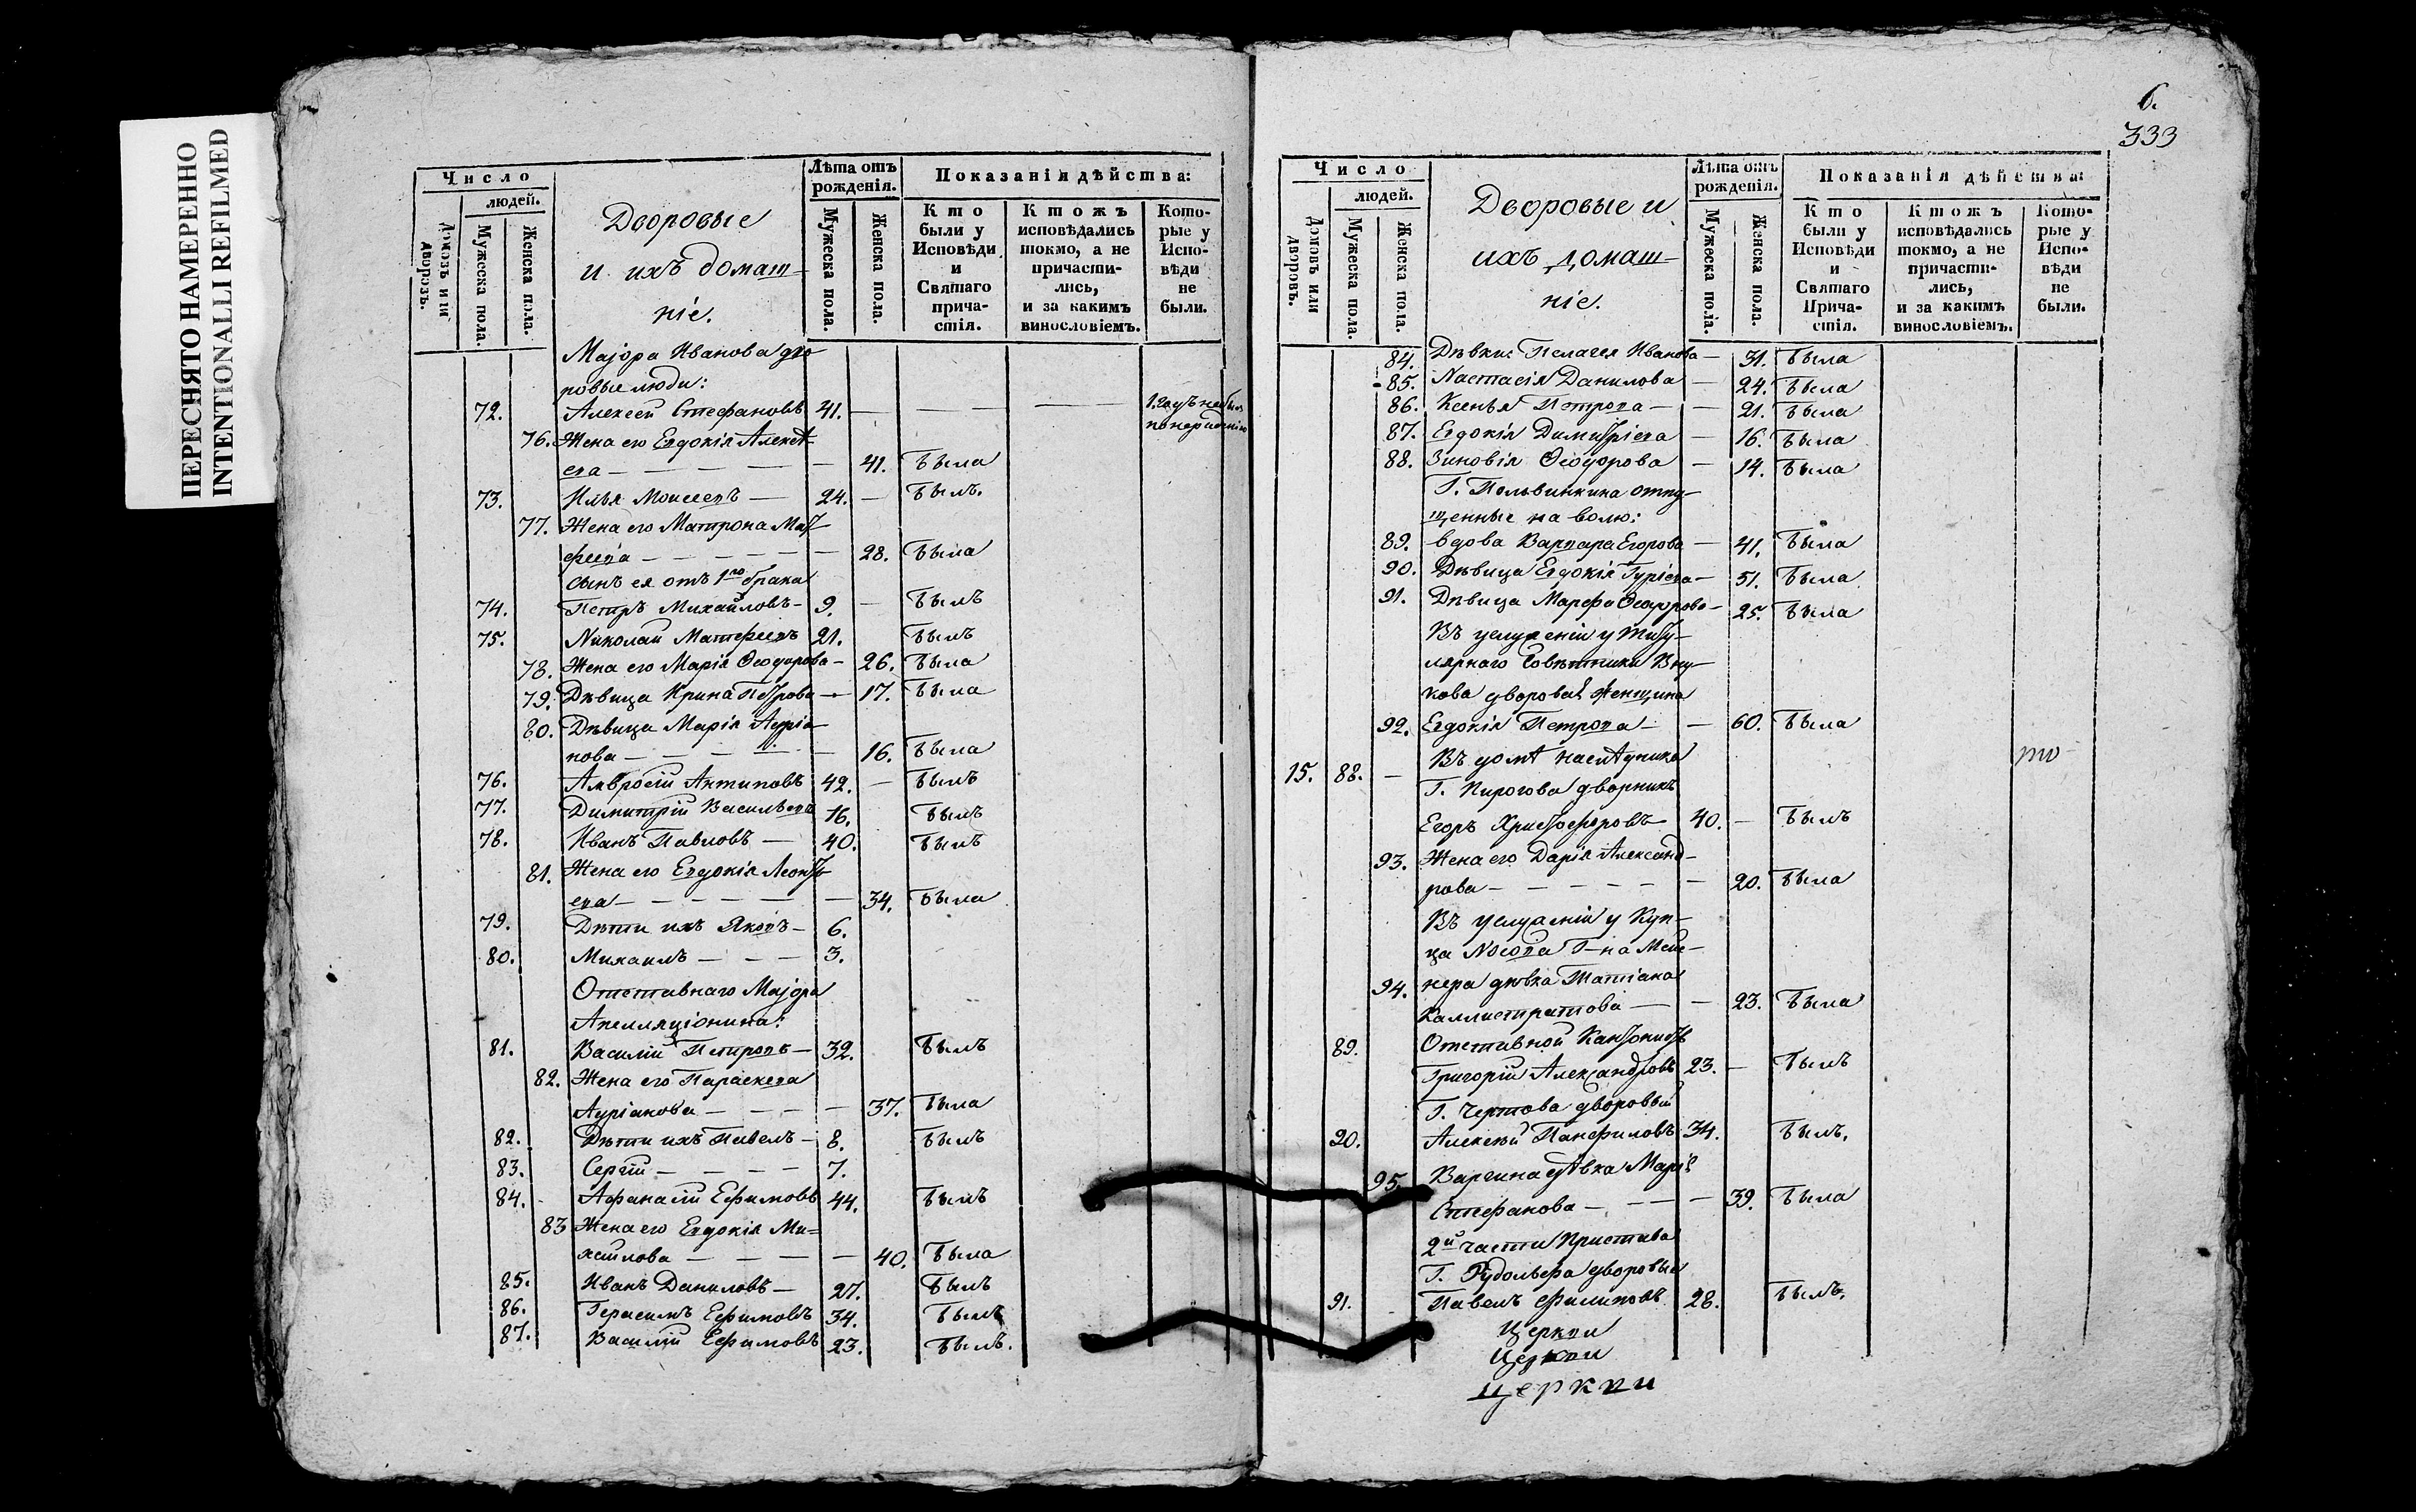 ПЕРЕСНЯТО НАМЕРЕННО
INTENTIONALLI REFILMED
Число
людей.
Домовъ или дворовъ.
Мужеска пола.
Женска пола.
Дворовые
и ихъ домаш-
ніе.
Лѣта отъ рожденія.
Мужеска пола.
Женска пола.
Показанія дѣйства:
Кто были у Исповѣди и Святаго прича-стія.
Ктожъ исповѣдались токмо, а не причасти-лись, и за какимъ винословіемъ.
Кото-рые у Испо-вѣди не были.
Маjора Иванова дво-
ровые люди:
72. Алексей Стефановъ 41. — — — 1. годъ не былъ
76. Жена его Евдокія Алексѣ-
ева — — — — — 41. Была
73. Илья Моисеевъ — 24. — Былъ.
77. Жена его Матрона Мат-
феева — — — — — 28. Была
сынъ ея отъ 1го брака
74. Петръ Михайловъ — 9. — Былъ
75. Николай Матфеевъ 21. Былъ
78. Жена его Марія Ѳеодорова — 26. Была
79. Дѣвица Ирина Петрова — 17. Была
80. Дѣвица Марія Адріа-
нова — — — — — 16. Была
76. Амвросій Антиповъ 42. — Былъ
77. Димитрій Васильевъ 16. Былъ
78. Иванъ Павловъ — 40. Былъ
81. Жена его Евдокія Леонть
ева — — — — — 34. Была
79. Дѣти ихъ Яковъ — 6.
80. Михаилъ — — — 3.
Отставнаго Маjора
Апелляціонина:
81. Василій Петровъ — 32. Былъ
82. Жена его Параскева
Адріанова — — — — 37. Была
82. Дѣти ихъ Павелъ — 8. Былъ
83. Сергій — — — — 7.
84. Афанасій Ефимовъ 44. Былъ
83 Жена его Евдокія Ми=
хайлова — — — — 40. Была
85. Иванъ Даниловъ — 27. Былъ
86. Герасимъ Ефимовъ 34. Былъ
87. Василій Ефимовъ 23. Былъ.
6.
333
Число
людей.
Домовъ или дворовъ.
Мужеска пола.
Женска пола.
Дворовые и
ихъ домаш-
ніе.
Лѣта отъ рожденія.
Мужеска пола.
Женска пола.
Показанія дѣйства:
Кто были у Исповѣди и Святаго Прича-стія.
Ктожъ исповѣдались токмо, а не причасти-лись, и за какимъ винословіемъ.
Кото-рые у Испо-вѣди не были.
84. Дѣвки: Пелагея Иванова — 31. Была
85. Настасія Данилова — 24. Была
86. Ксенья Петрова — — 21. Была
87. Евдокія Димитріева — 16. Была
88. Зиновія Ѳеодорова — 14. Была
Г. Польвинкина отпу-
щенные на волю:
89. вдова Варвара Егорова — 41. Была
90. Дѣвица Евдокія Гуріева — 51. Была
91. Дѣвица Марфа Ѳеодорова — 25. Была
Въ услуженіи у титу-
лярнаго Совѣтника Вну-
кова дворовая женщина
92. Евдокія Петрова — — 60. Была
Въ домѣ наслѣдника
15. 88. — Г. Пирогова дворникъ
Егоръ Христофоровъ 40. — Былъ
93. Жена его Дарія Александ-
рова — — — — — — 20. Была
Въ услуженіи у Куп-
ца Носова Г-на Мей-
94. нера дѣвка Татіана
Каллистратова — — 23. Была
89. Отставной Кантонистъ
Григорій Александровъ 23. — Былъ
Г. Чертова дворовый
90. Алексѣй Панфиловъ 34. Былъ.
95. Варгина дѣвка Марія
Стефанова — — — — 39. Была
2й части Пристава
Г. Рудольфа дворовые
91. Павелъ Филиповъ 28. Былъ.
Церкви
Церкви
Церкви